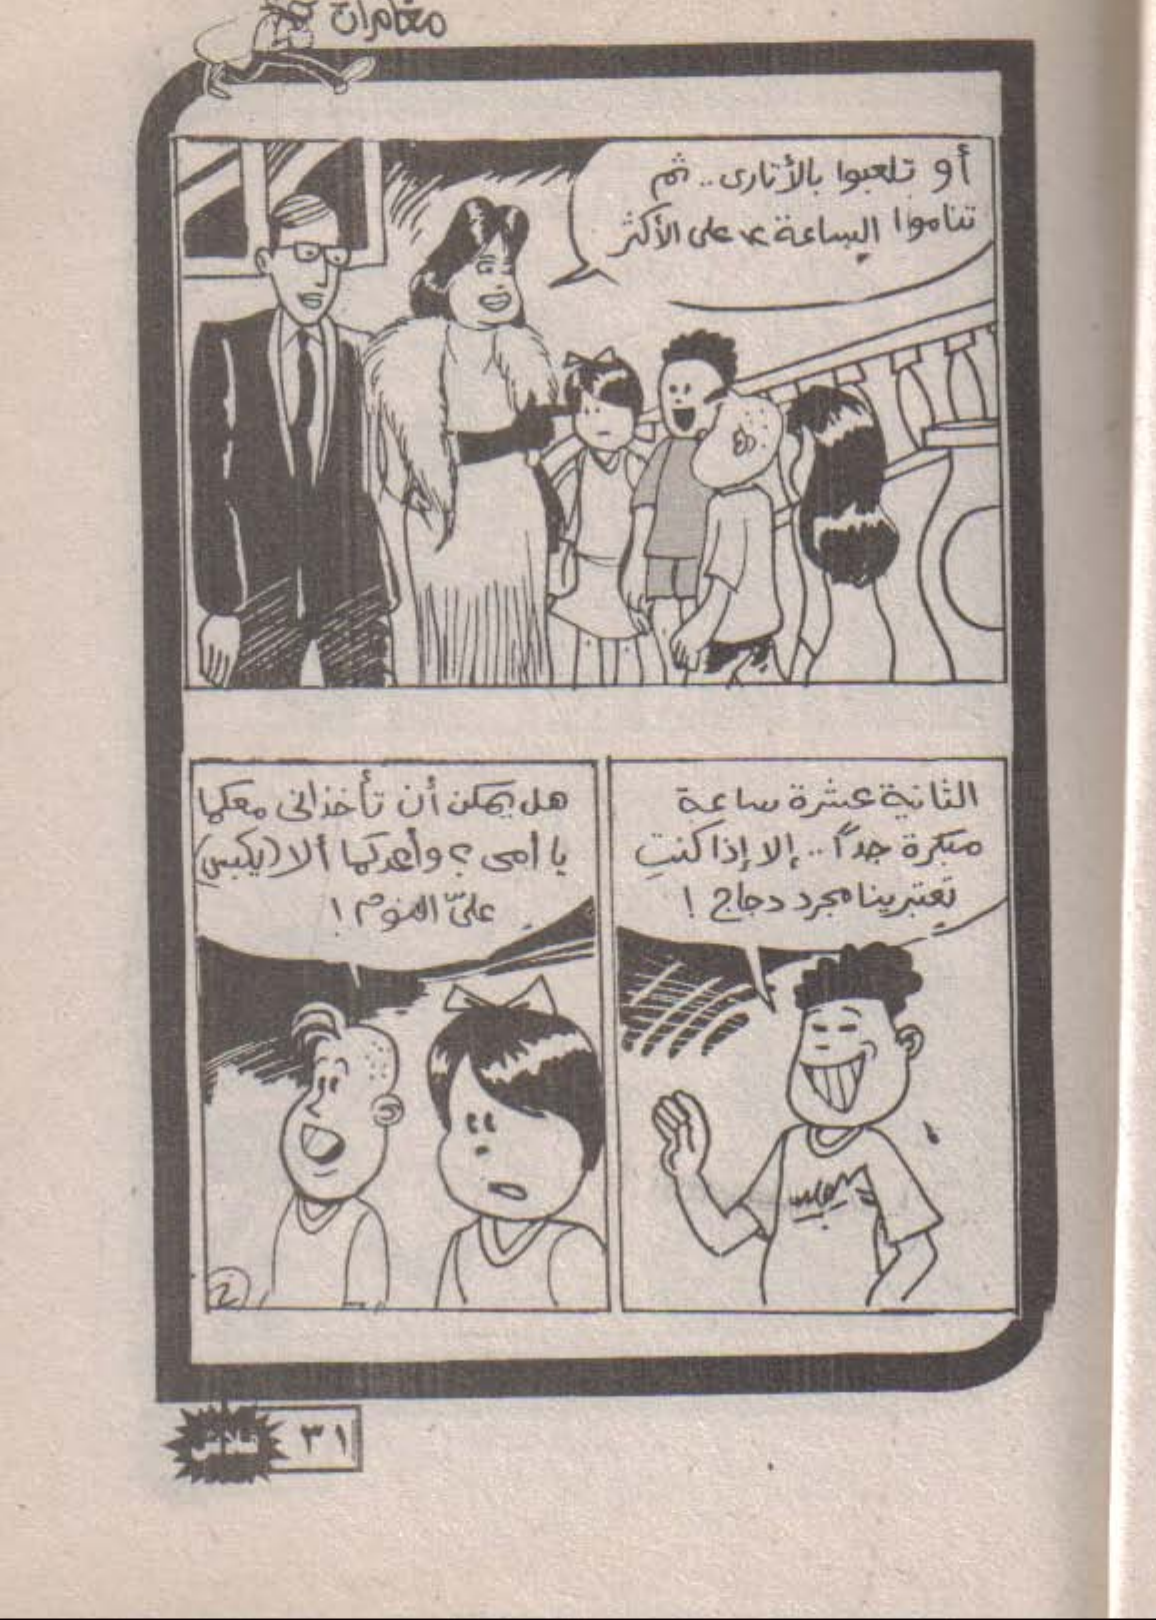 مغامرات
أو تلعبوا بالأتارى.. ثم
تناموا الساعة ١٢ على الأكثر
الثانية عشرة ساعة
مبكرة جداً.. إلا إذا كنتِ
تعتبريننا مجرد دجاج !
هل يمكن أن تأخذانى معكما
يا أمى ؟ وأعدكما ألا (يكبس)
علىّ النوم !
٣١
فلاش